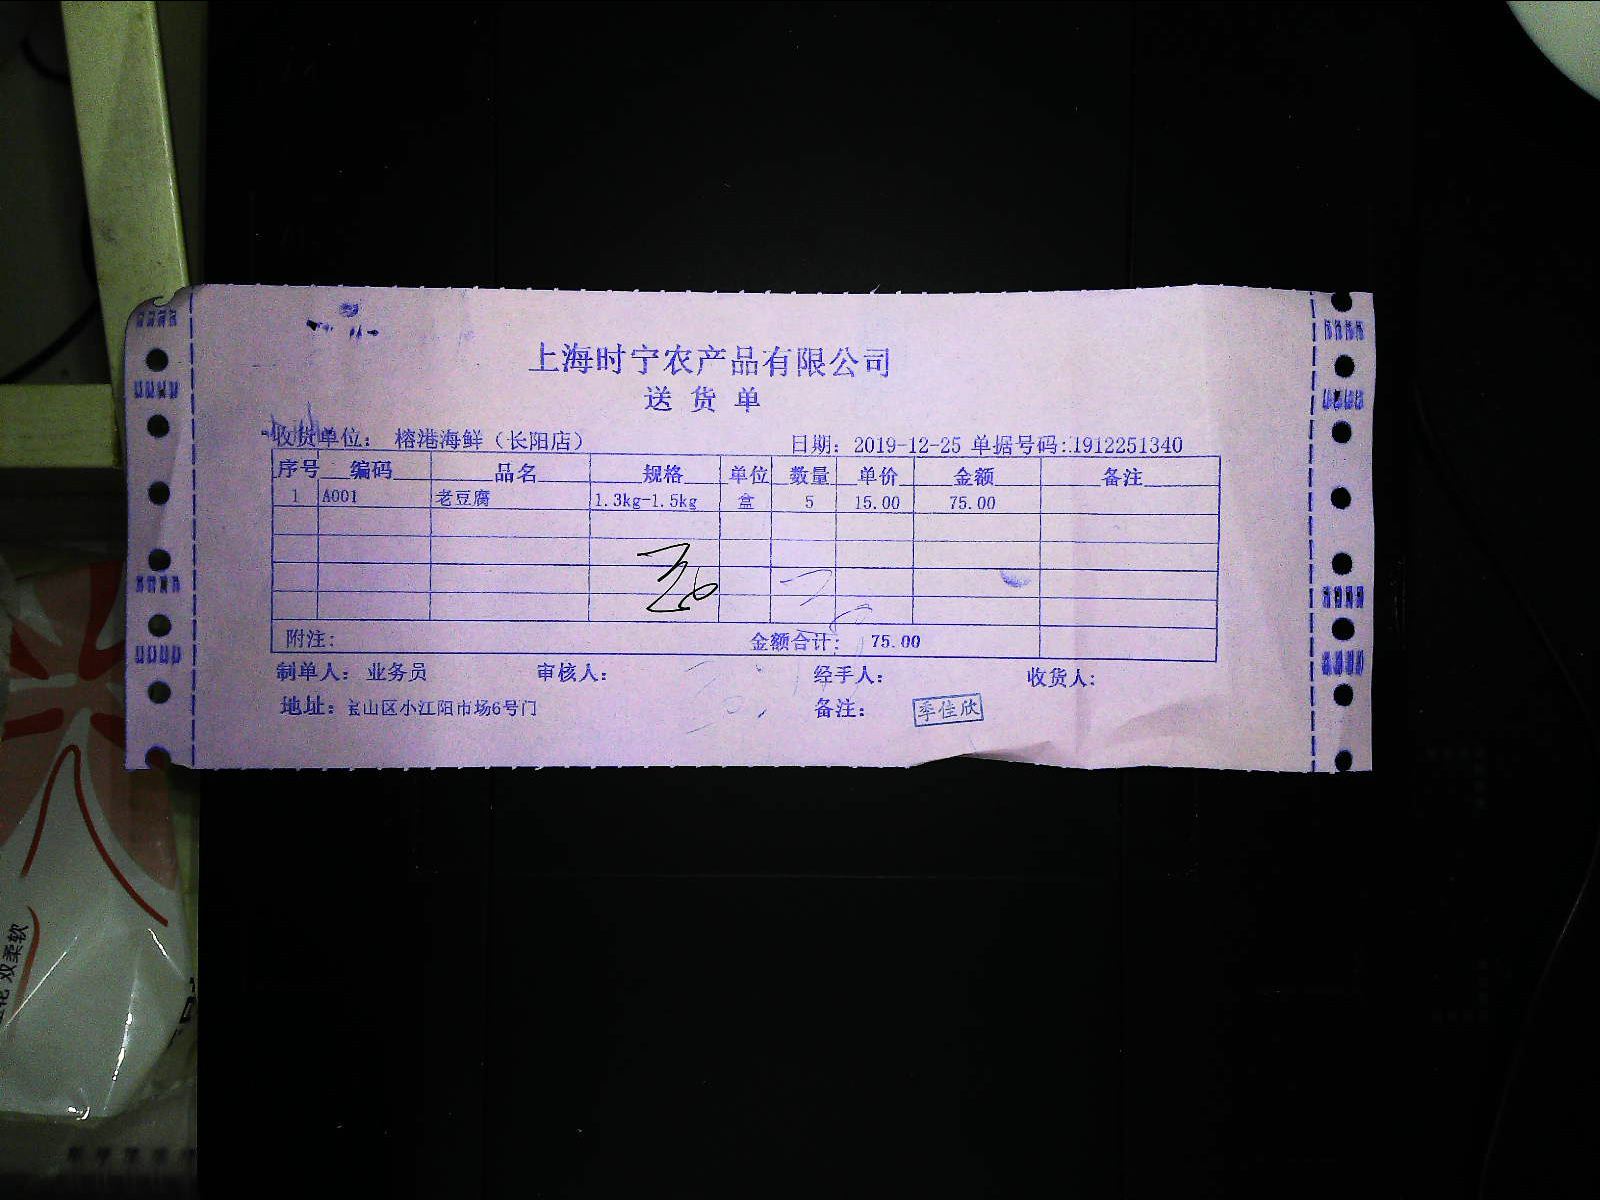 上海时宁农产品有限公司
送货单
收货单位: 榕港海鲜(长阳店) 日期: 2019-12-25 单据号码:.1912251340
序号 编码 品名 规格 单位 数量 单价 金额 备注
1 A001 老豆腐 1.3kg-1.5kg 盒 5 15.00 75.00
附注: 金额合计: 75.00
制单人: 业务员 审核人: 经手人: 收货人:
地址: 宝山区小江阳市场6号门 备注: 季佳欣
双柔软